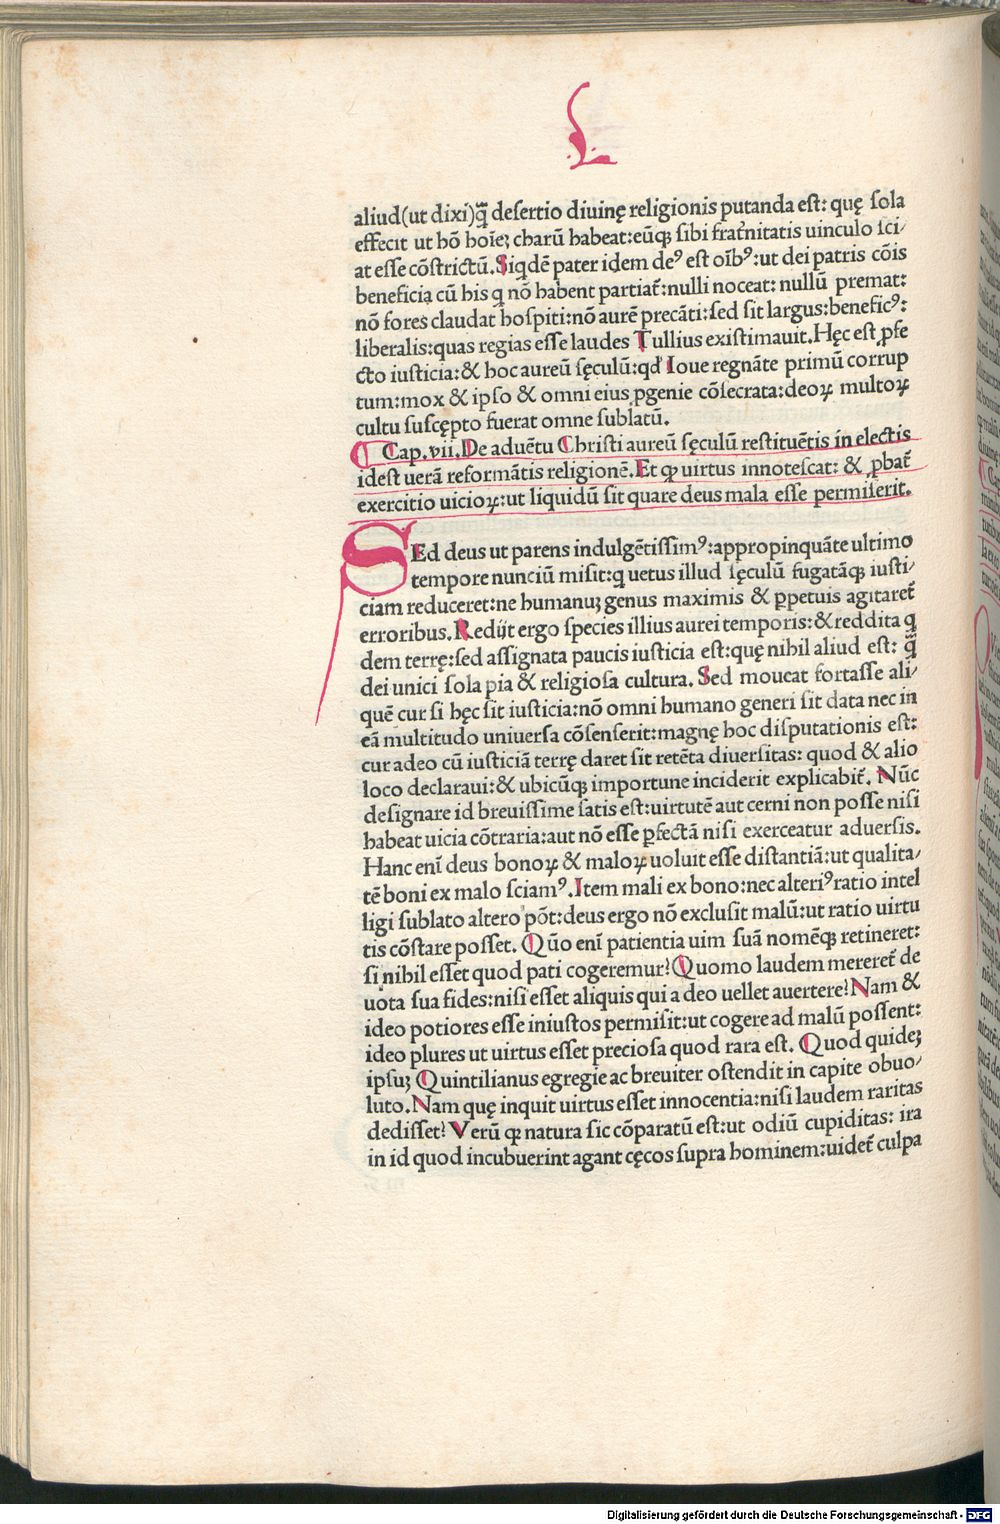 L
aliud(ut dixi)q̃ꝫ desertio diuinę religionis putanda est: quę sola
effecit ut hõ hoĩeꝫ charũ habeat:eũqꝫ sibi frat̃nitatis uinculo sci⸗
at esse cõstrictũ.Siqdẽ pater idem deꝰ est oĩbꝰ:ut dei patris cõis
beneficia cũ his q nõ habent partiat̃:nulli noceat: nullũ premat:
nõ fores claudat hospiti:nõ aurẽ precãti:sed sit largus:beneficꝰ:
liberalis:quas regias esse laudes Tullius existimauit.Hęc est ꝑfe
cto iusticia:& hoc aureũ sęculũ:qđ Ioue regnãte primũ corrup
tum:mox & ipso & omni eius ꝓgenie cõsecrata:deoꝝ multoꝝ
cultu suscępto fuerat omne sublatũ.
¶ Cap.vii.De aduẽtu Christi aureũ sęculũ restituẽtis in electis
idest uerã reformãtis religionẽ.Et ꝙ uirtus innotescat: & ꝓbat̃
exercitio uicioꝝ:ut liquidũ sit quare deus mala esse permiserit.
SEd deus ut parens indulgẽtissimꝰ:appropinquãte ultimo
tempore nunciũ misit:q uetus illud sęculũ fugatãqꝫ iusti⸗
ciam reduceret:ne humanuꝫ genus maximis & ꝑpetuis agitaret̃
erroribus.Redijt ergo species illius aurei temporis:& reddita q
dem terrę:sed assignata paucis iusticia est:quę nihil aliud est: q̃ꝫ
dei unici sola pia & religiosa cultura. Sed moueat fortasse ali⸗
quẽ cur si hęc sit iusticia:nõ omni humano generi sit data nec in
eã multitudo uniuersa cõsenserit:magnę hoc disputationis est:
cur adeo cũ iusticiã terrę daret sit retẽta diuersitas: quod & alio
loco declaraui:& ubicũqꝫ importune inciderit explicabit̃. Nũc
designare id breuissime satis est:uirtutẽ aut cerni non posse nisi
habeat uicia cõtraria:aut nõ esse ꝑfectã nisi exerceatur aduersis.
Hanc enĩ deus bonoꝝ & maloꝝ uoluit esse distantiã:ut qualita⸗
tẽ boni ex malo sciamꝰ.Item mali ex bono:nec alteriꝰ ratio intel
ligi sublato altero põt:deus ergo nõ exclusit malũ:ut ratio uirtu
tis cõstare posset. Qũo enĩ patientia uim suã nomẽqꝫ retineret:
si nihil esset quod pati cogeremur?Quomo laudem mereret̃ de
uota sua fides:nisi esset aliquis qui a deo uellet auertere?Nam &
ideo potiores esse iniustos permisit:ut cogere ad malũ possent:
ideo plures ut uirtus esset preciosa quod rara est. Quod quideꝫ
ipsuꝫ Quintilianus egregie ac breuiter ostendit in capite obuo⸗
luto.Nam quę inquit uirtus esset innocentia:nisi laudem raritas
dedisset? Verũ ꝙ natura sic cõparatũ est:ut odiũ cupiditas: ira
in id quod incubuerint agant cęcos supra hominem:uidet̃ culpa
Digitalisierung gefördert durch die Deutsche Forschungsgemeinschaft - DFG